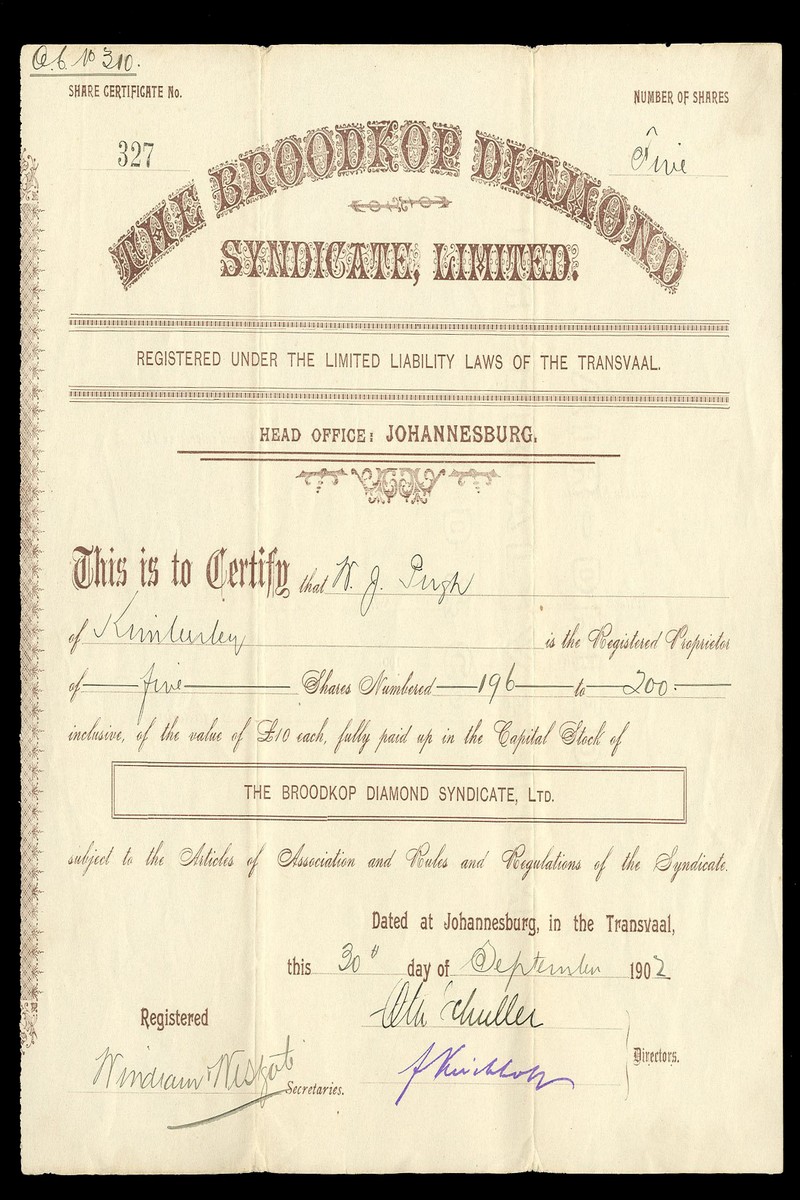 O.C. No 310.
SHARE CERTIFICATE No.
NUMBER OF SHARES
327
Five
THE BROODKOP DIAMOND
SYNDICATE, LIMITED.
REGISTERED UNDER THE LIMITED LIABILITY LAWS OF THE TRANSVAAL.
HEAD OFFICE: JOHANNESBURG.
This is to Certify that W. J. Pugh
of Kimberley is the Registered Proprietor
of five Shares Numbered 196 to 200.
inclusive, of the value of £10 each, fully paid up in the Capital Stock of
THE BROODKOP DIAMOND SYNDICATE, LTD.
subject to the Articles of Association and Rules and Regulations of the Syndicate.
Dated at Johannesburg, in the Transvaal,
this 30th day of September 1902
Registered
Otto Schuller
Directors.
Secretaries.